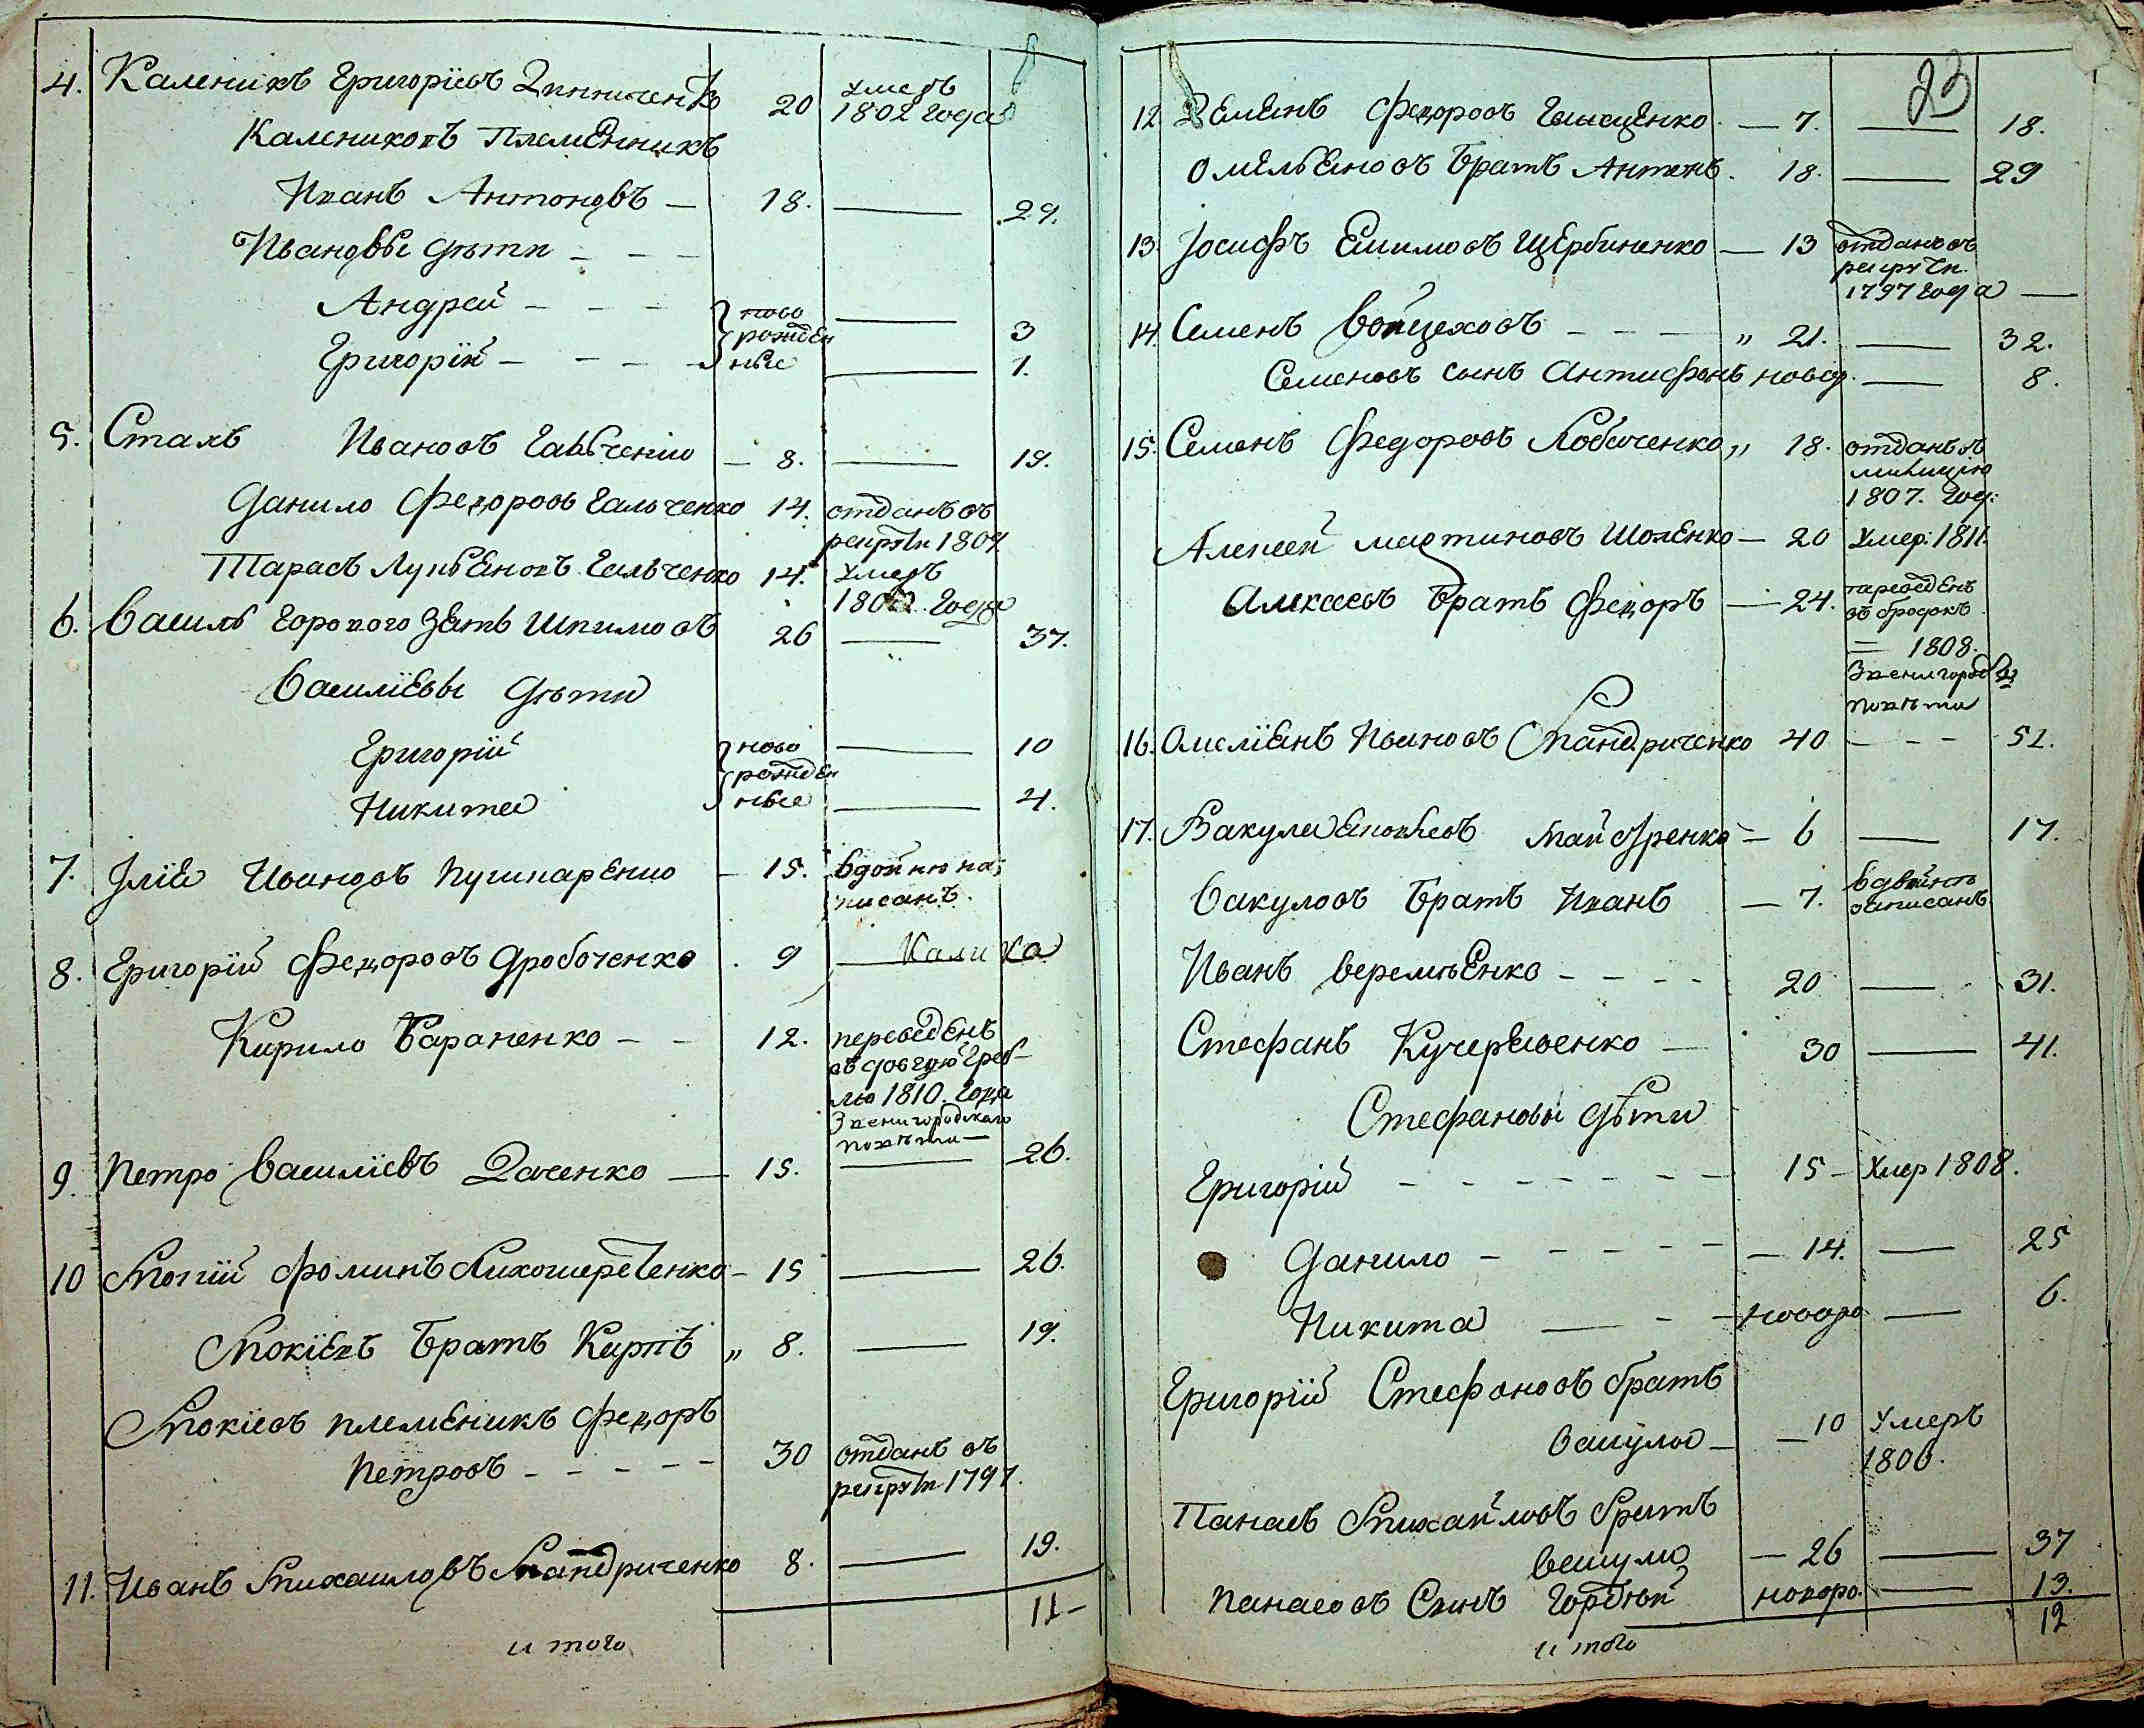 4. Каленикъ Григоріевъ Зинниченко 20 умеръ 1802 года
Калениковъ племенникъ
Иванъ Антоновъ — 18. — 29.
Ивановы дѣти
Андрей ново — 3
рожден
Григорій ные — 1.
5. Стахъ Ивановъ Гальченко — 8. — 19.
Данило Федоровъ Гальченко 14. отданъ въ
рекруты 1804
Тарасъ Лукьяновъ Гальченко 14. умеръ
180 года
6. Василь Горового зять Шпилювъ 26 — 37.
Василіевы дѣти
Григорій ново — 10
рожден
Никита ные — 4.
7. Іліа Ивановъ Пушкаренко — 15. вдойню на-
писанъ.
8. Григорій Федоровъ Дробченко 9 — Калика
Кирило Бараненко — 12. переведенъ
въ довгую греб-
лю 1810. года
Звенигородскаго
повѣта
9. Петро Василіевъ Даченко — 15. — 26.
10 Мокій Фоминъ Лихошерстенко — 15 — 26.
Мокіевъ братъ Карпъ „ 8. — 19.
Мокіевъ племеникъ Федоръ
Петровъ 30 отданъ въ
рекруты 1797.
11. Иванъ Михаиловъ Мандриченко 8. — 19.
11 —
итого
23
12 Емеліенъ Федоровъ — 7. — 18.
Омельяновъ братъ Антонъ. 18. — 29
13. Іосифъ Екимовъ Щербиненко — 13 отданъ въ
рекруты.
1797 года —
14. Семенъ Войцеховъ „ 21. — 32.
Семеновъ сынъ Антифонъ новор. — 8.
15. Семенъ Федоровъ Лобаченко „ 18. отданъ въ
милицію
1807. год:
Алексей Мартиновъ Шоленко — 20 умер: 1811.
Алексеевъ братъ Федоръ — 24. переведенъ
въ бродокъ
1808.
Звенигородска
повѣта
16. Омеліанъ Ивановъ Мандриченко 40 — 52.
17. Вакула Майстренко — 6 — 17.
Вакуловъ братъ Иванъ — 7. вдвойнѣ
записанъ
Иванъ Веремѣенко 20 — 31.
Стефанъ Кучерявенко — 30 — 41.
Стефановы дѣти
Григорій 15 — умер 1808.
Данило — 14. — 25
Никита — новоро — 6.
Григорій Стефановъ братъ
Вакула — 10 умеръ
1806.
Панасъ Михайловъ братъ
Вакулы — 26 — 37
Панасовъ сынъ Гордѣй новоро. — 13.
12
итого